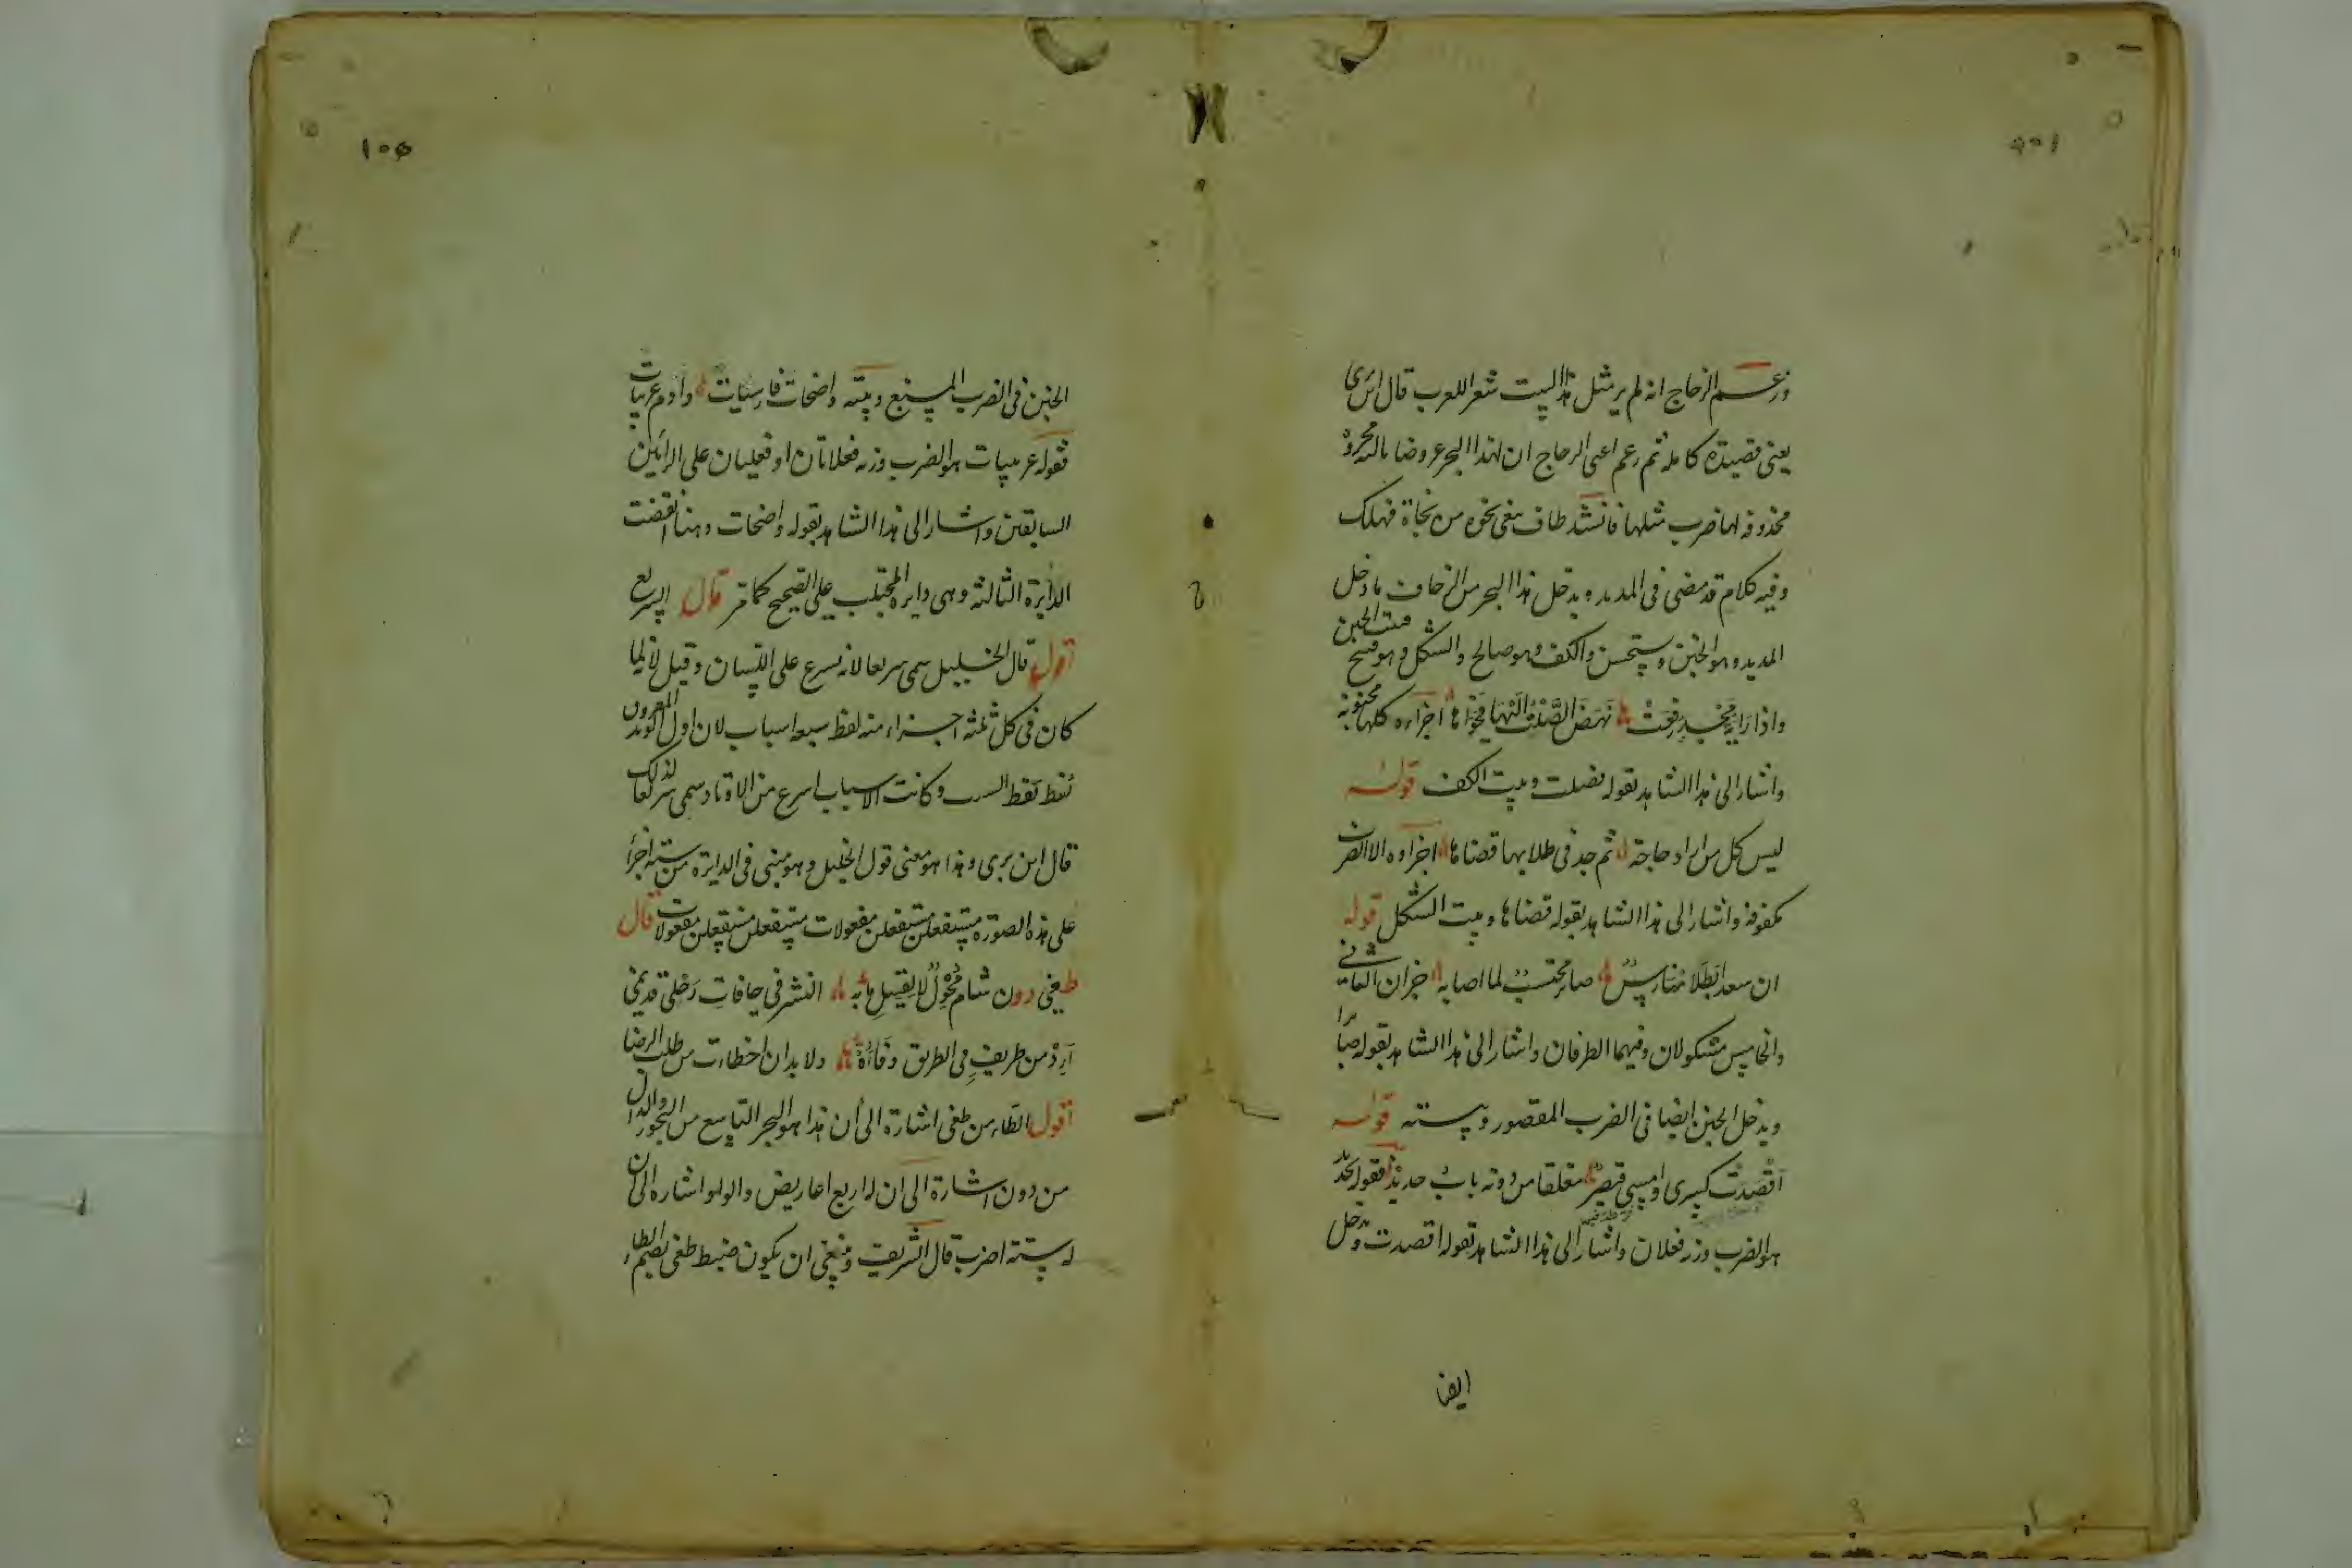 وزعم الزجاج انه لم ير مثل هذا البيت شعر اللعرب قال ابن بری
يعنى قصيدة كاملة ثم زعم اعنى الزجاج ان لهذا البحر عروضا ثالثة مجزوة
محذوفه لها ضرب مثلها فانشد طاف يبغى نجوة من نجاة فهلك
وفيه كلام قد مضى فى المديد ويدخل هذا البحر من الزحاف ما دخل
المديد وهو الخبن ويستحسن والكف وهو صالح والشكل وهو قبيح فبيت الخبن
واذا راية مجد رفعت نهض الصلت اليها فحواها اجزاءه كلها مخبونة
واشار الى هذا الشاهد بقوله فصلت وبيت الكف قوله
ليس كل من اراد حاجة ثم جد فى طلابها قضاها اجزاوه الا الضرب
مكفوفة واشار الى هذا الشاهد بقوله قضاها وبيت الشكل قوله
ان سعدا بطل ممارس صابر محتسب لما اصابه جزان الثانى
والخامس مشكولان وفيهما الطرفان واشار الى هذا الشاهد بقوله صابرا
ويدخل الخبن ايضا فى الضرب المقصور وبيته قوله
اقصدت كسرى وامسى قيصر مغلقا من دونه باب حديد فقوله حديد
هو الضرب وزنه فعلان واشار الى هذا الشاهد بقوله اقصدت ودخل
ايضا
١٠٥
الخبن فى الضرب المسبغ وبيته واضحات فارسيات وادم عربيات
فقوله عربيات هو الضرب وزنه فعلاتان او فعليان على الرأيين
السابقين واشار الى هذا الشاهد بقوله واضحات وهنا انقضت
الدايرة الثالثة وهى دايرة المجتلب على الصحيح كما مر قال السريع
اقول قال الخليل سمى سريعا لانه يسرع على اللسان وقيل لانه لما
كان فى كل ثلثه اجزاء منه لفظ سبعه اسباب لان اول الوتد المفروق
لفظ السبب وكانت الاسباب اسرع من الاوتاد سمى سريعا لذلك
قال ابن برى وهذا هو معنى قول الخليل وهو مبنى فى الدايرة من ستة اجزأ
على هذه الصورة مستفعلن مستفعلن مفعولات مستفعلن مستفعلن مفعولات قال
طغى دون شام محول لا لقيل ما به النشر فى حافات رحلى قد نمى
ارد من طريف فى الطريق وفاءة ولا بد ان اخطات من طلب الرضا
اقول الطاء من طغى اشارة الى ان هذا هو البحر التاسع من البحور والدال
من دون اشارة الى ان له اربع اعاريض والواو اشاره الى ان
له ستة اضرب قال الشريف وينبغى ان يكون ضبط طغى بضم الطاء